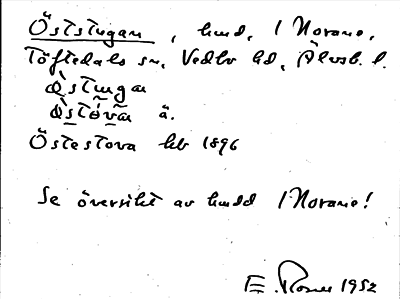 Öststugan, hmd, 1 Norane,
Töftedals sn, Vedbo hd, Älvsb. l.
Östuga
Östóva ä.
Östestova kb 1896
Se översikt av hmdd 1 Norane!
E. Rosell 1952